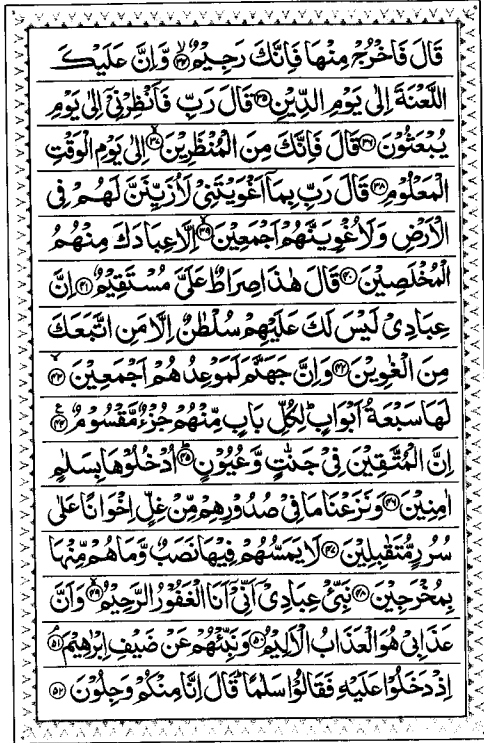 قَالَ فَاخْرُجْ مِنْهَا فَاِنَّكَ رَجِيْمٌ ۙ‏﴿۳۴﴾ وَّاِنَّ عَلَيْكَ
اللَّعْنَةَ اِلٰى يَوْمِ الدِّيْنِ ﴿۳۵﴾ قَالَ رَبِّ فَاَنْظِرْنِيْۤ اِلٰى يَوْمِ
يُبْعَثُوْنَ ﴿۳۶﴾ قَالَ فَاِنَّكَ مِنَ الْمُنْظَرِيْنَ ۙ﴿۳۷﴾ اِلٰى يَوْمِ الْوَقْتِ
الْمَعْلُوْمِ ﴿۳۸﴾ قَالَ رَبِّ بِمَاۤ اَغْوَيْتَنِيْ لَاُزَيِّنَنَّ لَهُمْ فِى
الْاَرْضِ وَلَاُغْوِيَنَّهُمْ اَجْمَعِيْنَ ۙ﴿۳۹﴾ اِلَّا عِبَادَكَ مِنْهُمُ
الْمُخْلَصِيْنَ ﴿۴۰﴾ قَالَ هٰذَا صِرَاطٌ عَلَىَّ مُسْتَقِيْمٌ ﴿۴۱﴾ اِنَّ
عِبَادِيْ لَيْسَ لَكَ عَلَيْهِمْ سُلْطٰنٌ اِلَّا مَنِ اتَّبَعَكَ
مِنَ الْغٰوِيْنَ ﴿۴۲﴾ وَاِنَّ جَهَنَّمَ لَمَوْعِدُهُمْ اَجْمَعِيْنَ ۙ﴿۴۳﴾
لَهَا سَبْعَةُ اَبْوَابٍ ؕ لِكُلِّ بَابٍ مِّنْهُمْ جُزْءٌ مَّقْسُوْمٌ ﴿۴۴﴾ ع
اِنَّ الْمُتَّقِيْنَ فِيْ جَنّٰتٍ وَّعُيُوْنٍ ؕ﴿۴۵﴾ اُدْخُلُوْهَا بِسَلٰمٍ
اٰمِنِيْنَ ﴿۴۶﴾ وَنَزَعْنَا مَا فِيْ صُدُوْرِهِمْ مِّنْ غِلٍّ اِخْوَانًا عَلٰى
سُرُرٍ مُّتَقٰبِلِيْنَ ﴿۴۷﴾ لَا يَمَسُّهُمْ فِيْهَا نَصَبٌ وَّمَا هُمْ مِّنْهَا
بِمُخْرَجِيْنَ ﴿۴۸﴾ نَبِّئْ عِبَادِيْۤ اَنِّيْۤ اَنَا الْغَفُوْرُ الرَّحِيْمُ ۙ﴿۴۹﴾ وَاَنَّ
عَذَابِيْ هُوَ الْعَذَابُ الْاَلِيْمُ ﴿۵۰﴾ وَنَبِّئْهُمْ عَنْ ضَيْفِ اِبْرٰهِيْمَ ۘ﴿۵۱﴾
اِذْ دَخَلُوْا عَلَيْهِ فَقَالُوْا سَلٰمًا ؕ قَالَ اِنَّا مِنْكُمْ وَجِلُوْنَ ﴿۵۲﴾